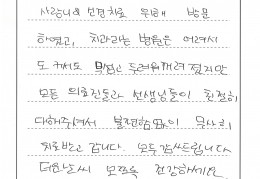 사랑니& 신경치료 위해 방문
하였고, 치과라는 병원은 어려서
도 커서도 무섭고 두려워 꺼려 졌지만
모든 의료진분과 선생님들이 친절히
대해주셔서 불편함없이 무사히
치료받고 갑니다. 모두 감사드립니다
더운날씨 모쪼록 건강하세요